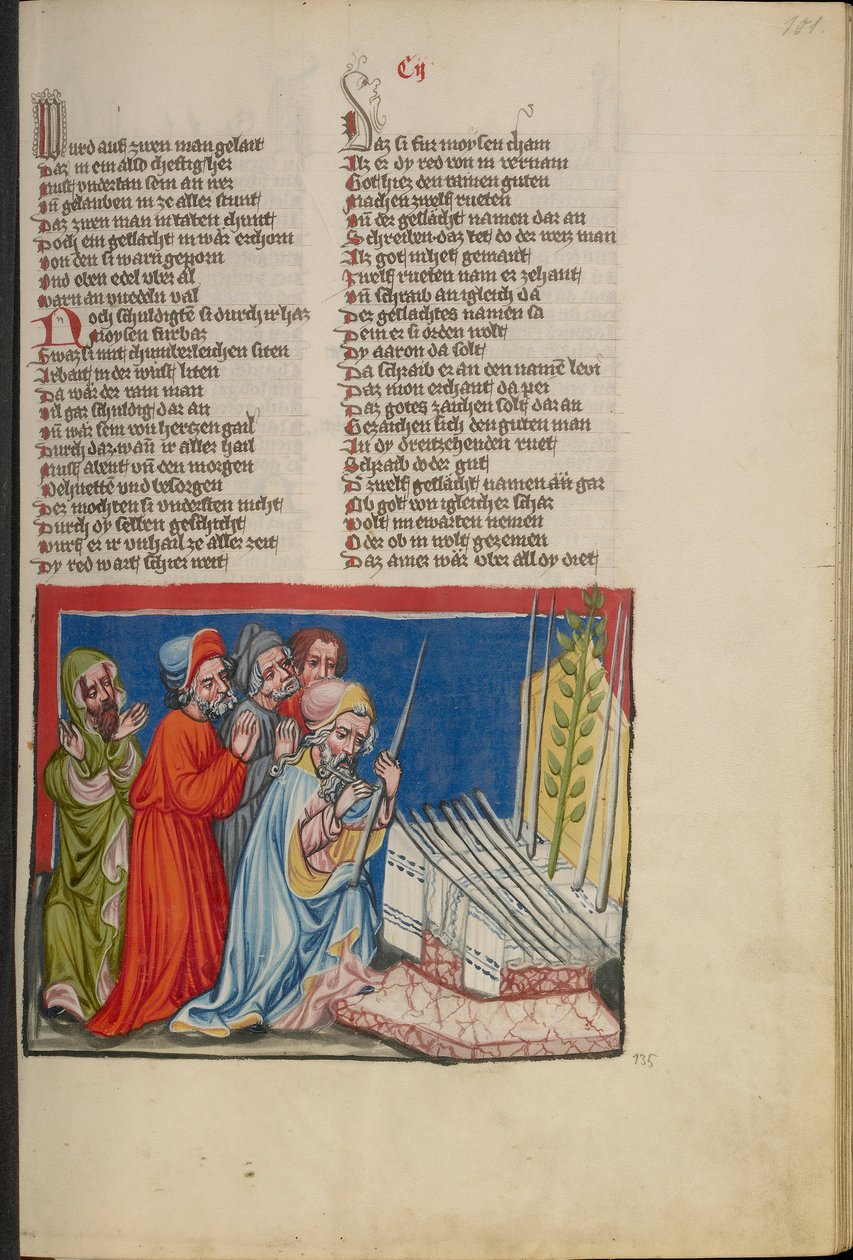 101.
Cij
Wurd auß zwen man gelait
Daz in ein also cheftig her
Must vndertan sein an wer
Vn̄ gelauben in ze aller stunt
Daz zwen man in taten chunt
Doch ein geslächt in wär erchorn
Von den si warn geporn
Vnd eben edel vber al
Warn an vnedeln val
Noch schuldigtē si durch ir haz
Moysen fürbaz
Swaz si mit chumberleichen siten
Arbait in der wüst liten
Da wär der rain man
Vil gar schuldig dar an
Vn̄ wär sein von hertzen gail
Durch daz wan̄ ir aller hail
Must abent vn̄ den morgen
Behuetten vnd besorgen
Der mochten si vndersten nicht
Durch dy selben geschicht
Wurf er ir vnhail ze aller zeit
Dy red wart schier weit
Daz si für moysen cham
Alz er dy red von in vernam
Got hiez den rainen guten
Machen zwelf rueten
Vn̄ der geslächt namen dar an
Schreiben daz tet do der weiz man
Alz got in het gemant
Zwelf rueten nam er zehant
Vn̄ schraib an igleich da
Der geslachtes namen sa
Dem er si orden wolt
Dy aaron da solt
Da schraib er an den namē levi
Daz mon erchant da pei
Daz gotes zaichen solt dar an
Gezaichen sich den guten man
In dy dreitzehenden ruet
Schraib do der gut
D' zwelf geslächt namen an gar
Ob got von igleicher schar
Wolt im ewarten nemen
Oder ob in wolt gezemen
Daz ainer wär vber all dy diet
135